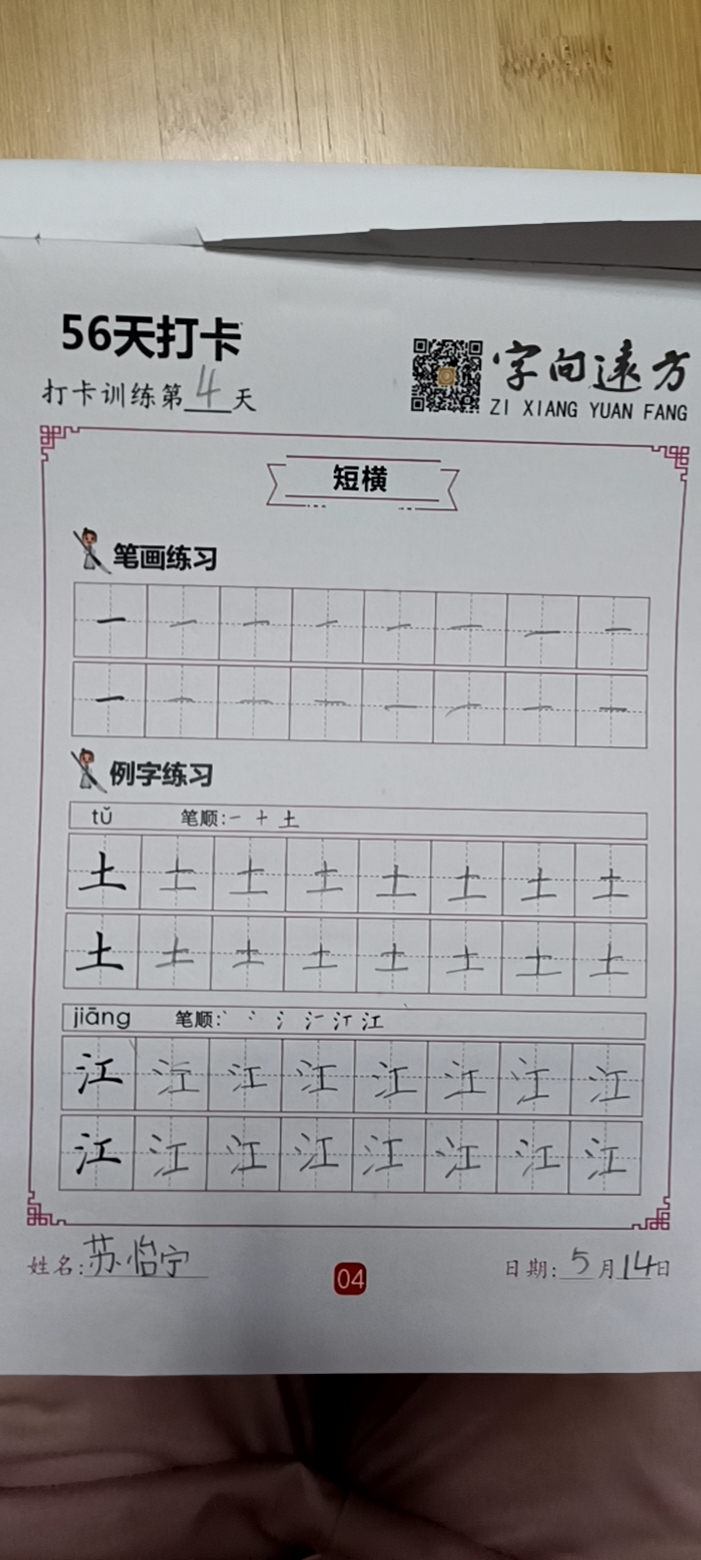 56天打卡
打卡训练第4天
字向远方
ZI XIANG YUAN FANG
短横
笔画练习
一 一 一 一 一 一 一 一
一 一 一 一 一 一 一 一
例字练习
tǔ 笔顺:一 十 土
土 土 土 土 土 土 土 土
土 土 土 土 土 土 土 土
jiāng 笔顺:丶 冫 氵 氵一 汀 江
江 江 江 江 江 江 江 江
江 江 江 江 江 江 江 江
姓名:苏怡宁
04
日期:5月14日